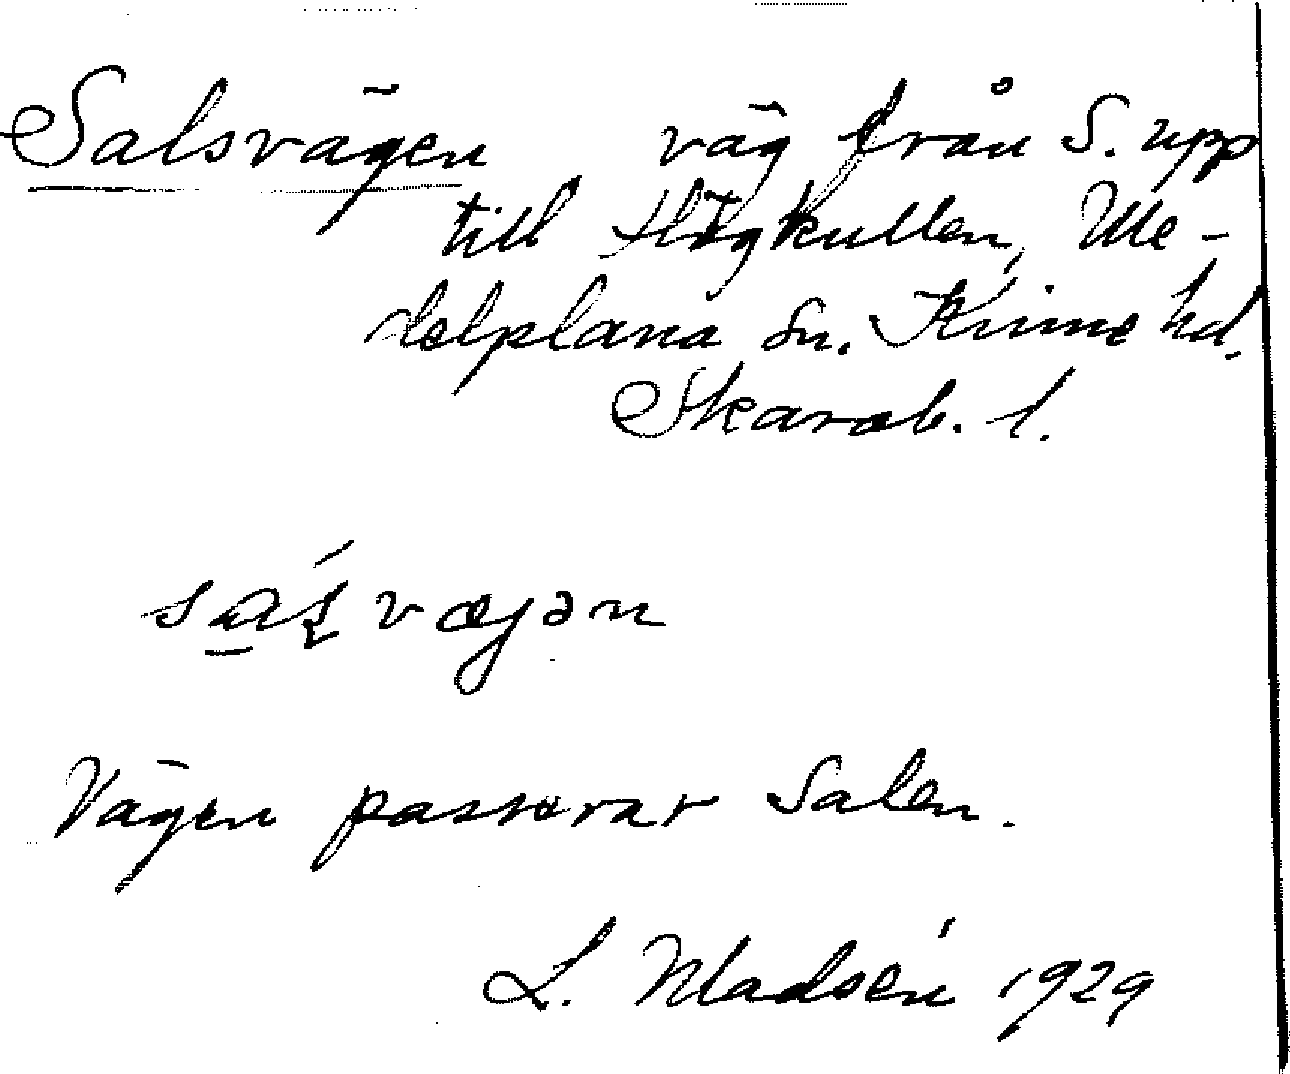 Salsvägen väg från S. upp
till Högkullen, Me-
delplana sn. Kinne hd,
Skarab. l.
Vägen passerar Salen.
L. Madsén 1929